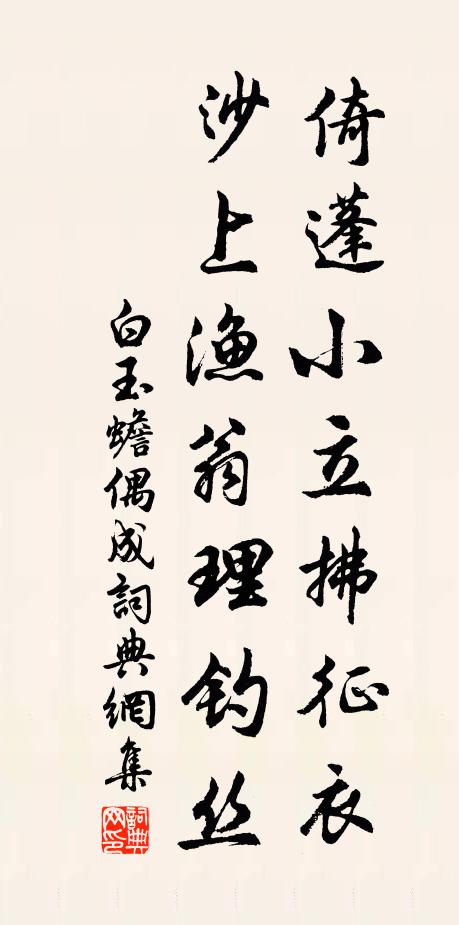 倚蓬小立拂征衣
沙上漁翁理钓丝
白玉蟾偶成詞典網集
詞典
网印